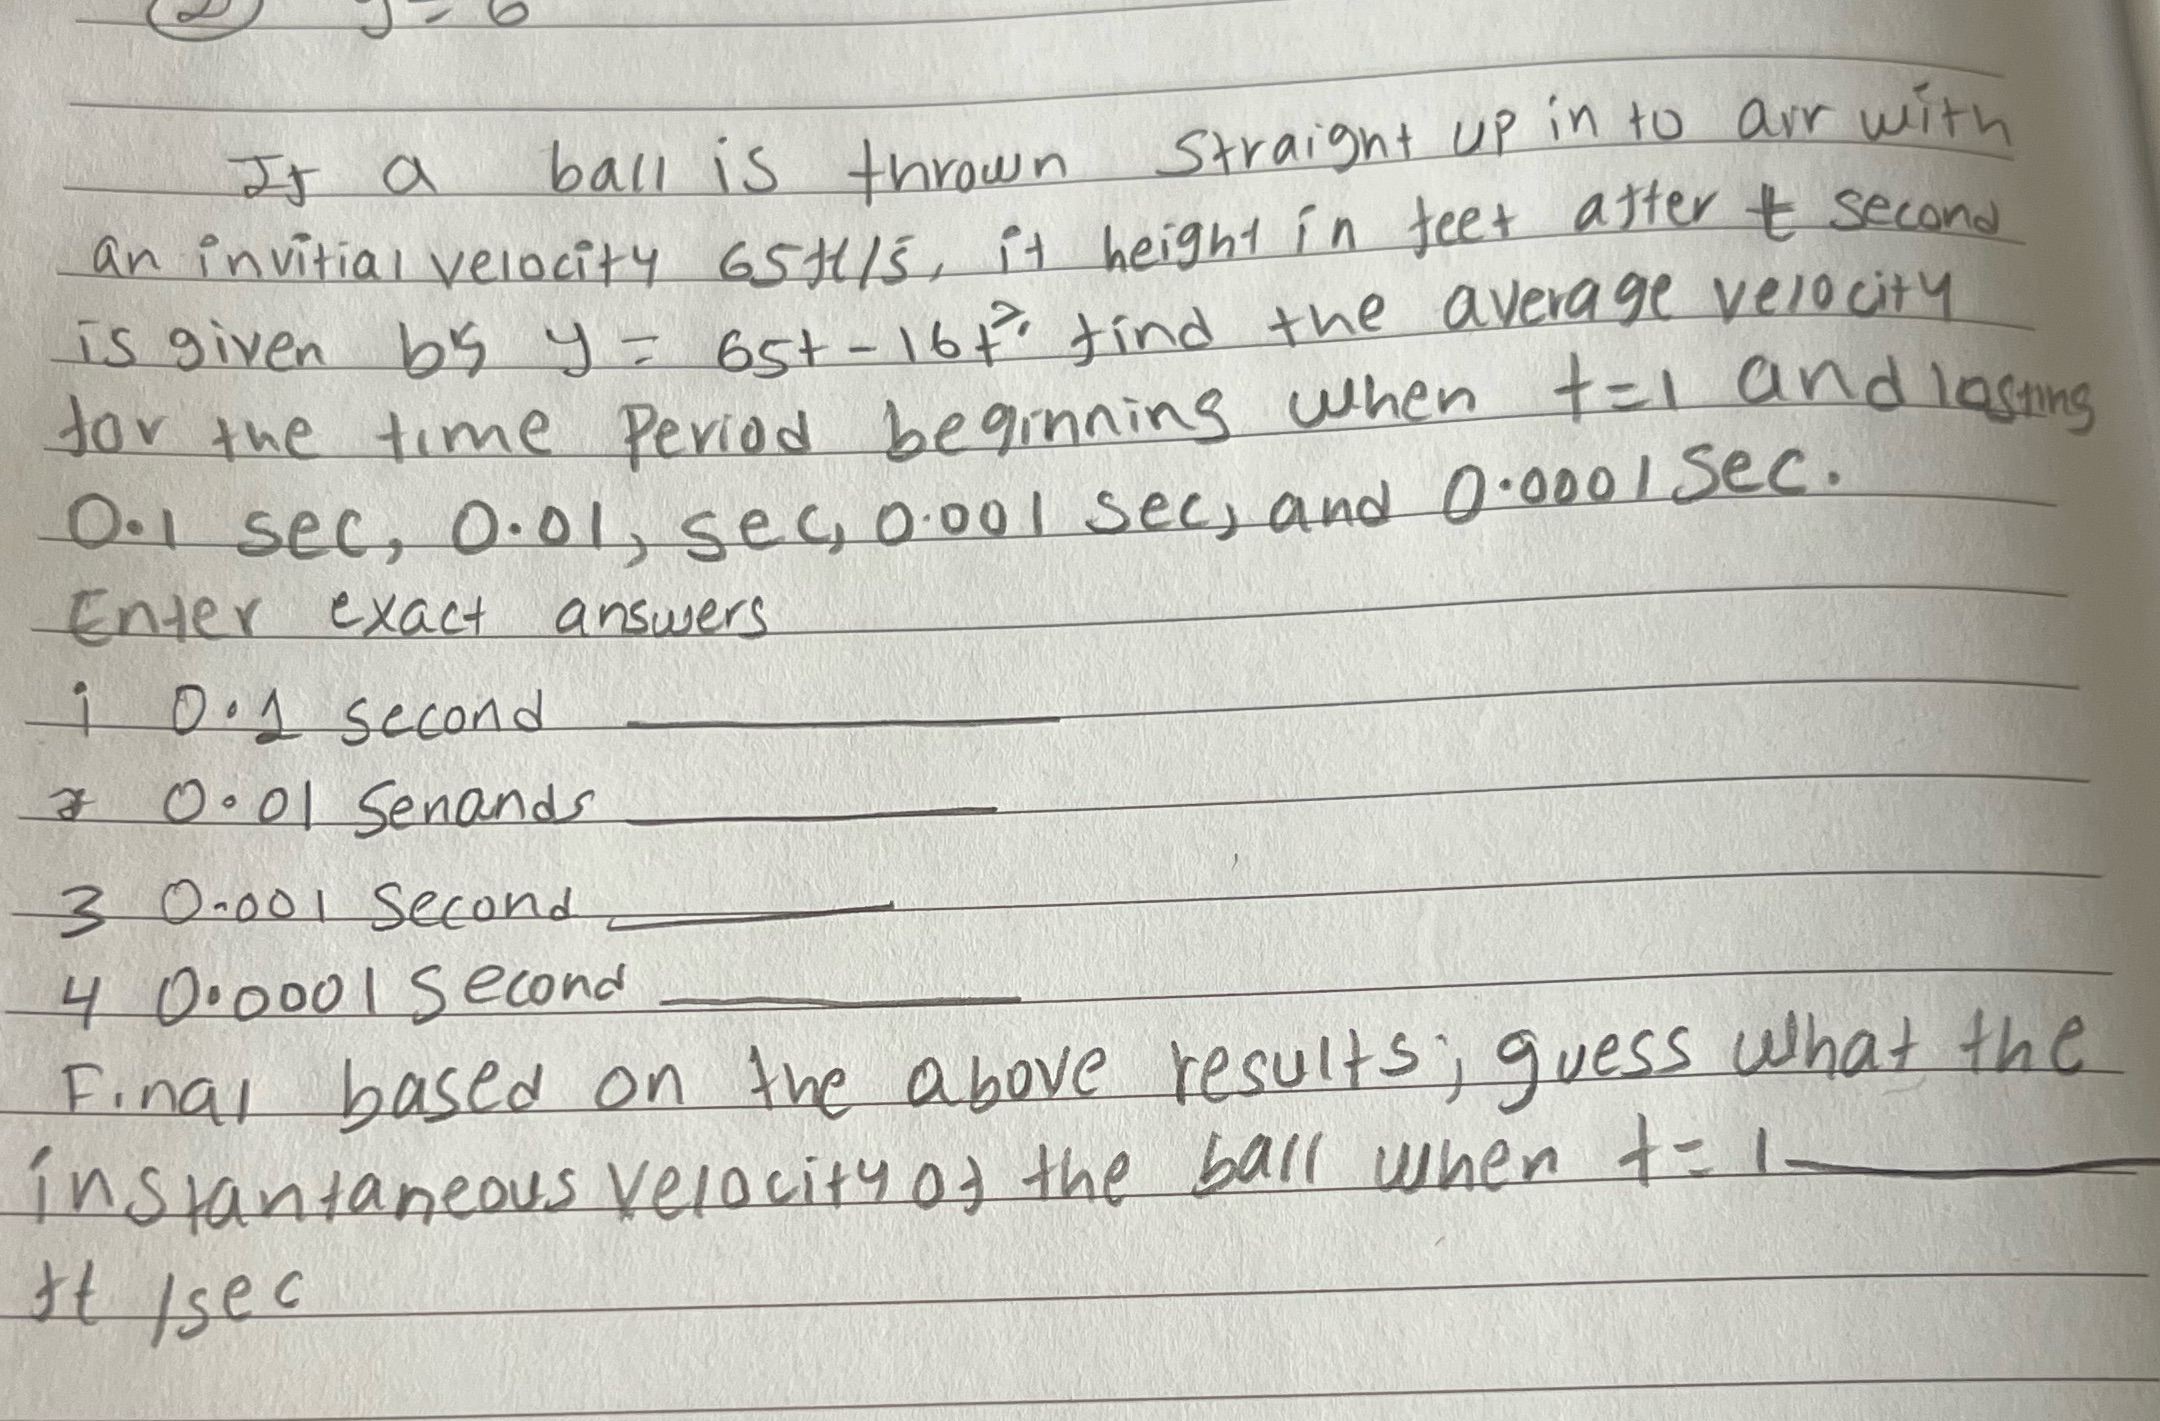 ② y = 6
If a ball is thrown straight up in to air with
an invitial velocity 65ft/s, it height in feet after t second
is given by y = 65t - 16t². find the average velocity
for the time Period beginning when t=1 and lasting
0.1 sec, 0.01, sec, 0.001 sec, and 0.0001 sec.
Enter exact answers
i 0.1 second
2 0.01 Senands
3 0.001 Second
4 0.0001 Second
Final based on the above results; guess what the
instantaneous velocity of the ball when t=1
ft /sec